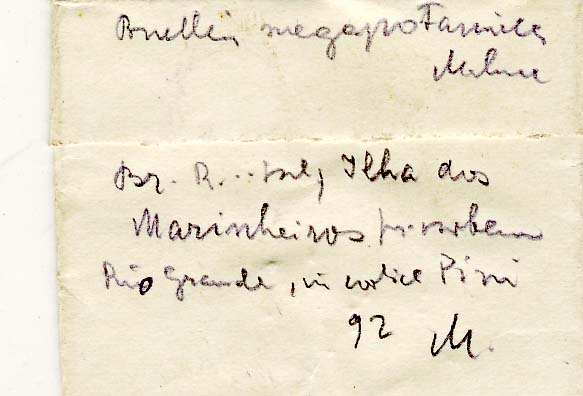 Buellia megapotamica
Malme
Br. Ilha dos
Marinheiros pr. urbem
Rio Grande, in cortice Pini
92 M.